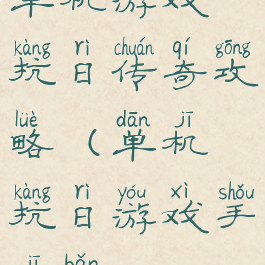 单机游戏
kàng rì chuán qí gōng
抗日传奇攻
lüè dān jī
略(单机
kàng rì yóu xì shǒu
抗日游戏手
jī bǎn